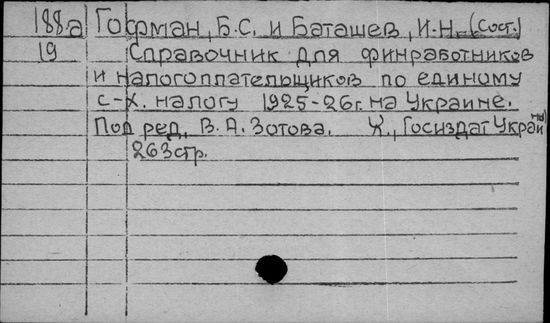 188.а Гофман, Б.С. и Баташев, И.Н. (сост.)
19 Справочник для финработников
и налогоплательщиков по единому
с-х. налогу 1925-26 г. на Украине.
Под ред. В.А. Зотова. Х., Госиздат Украины
263 стр.